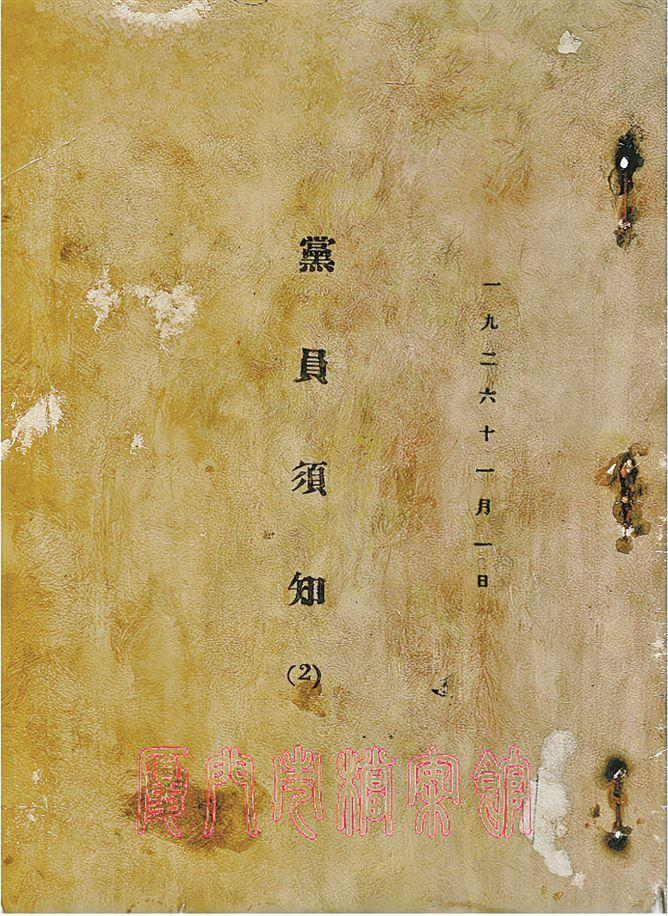 一九二六十一月一日
黨員須知
(2)
厦门市档案館